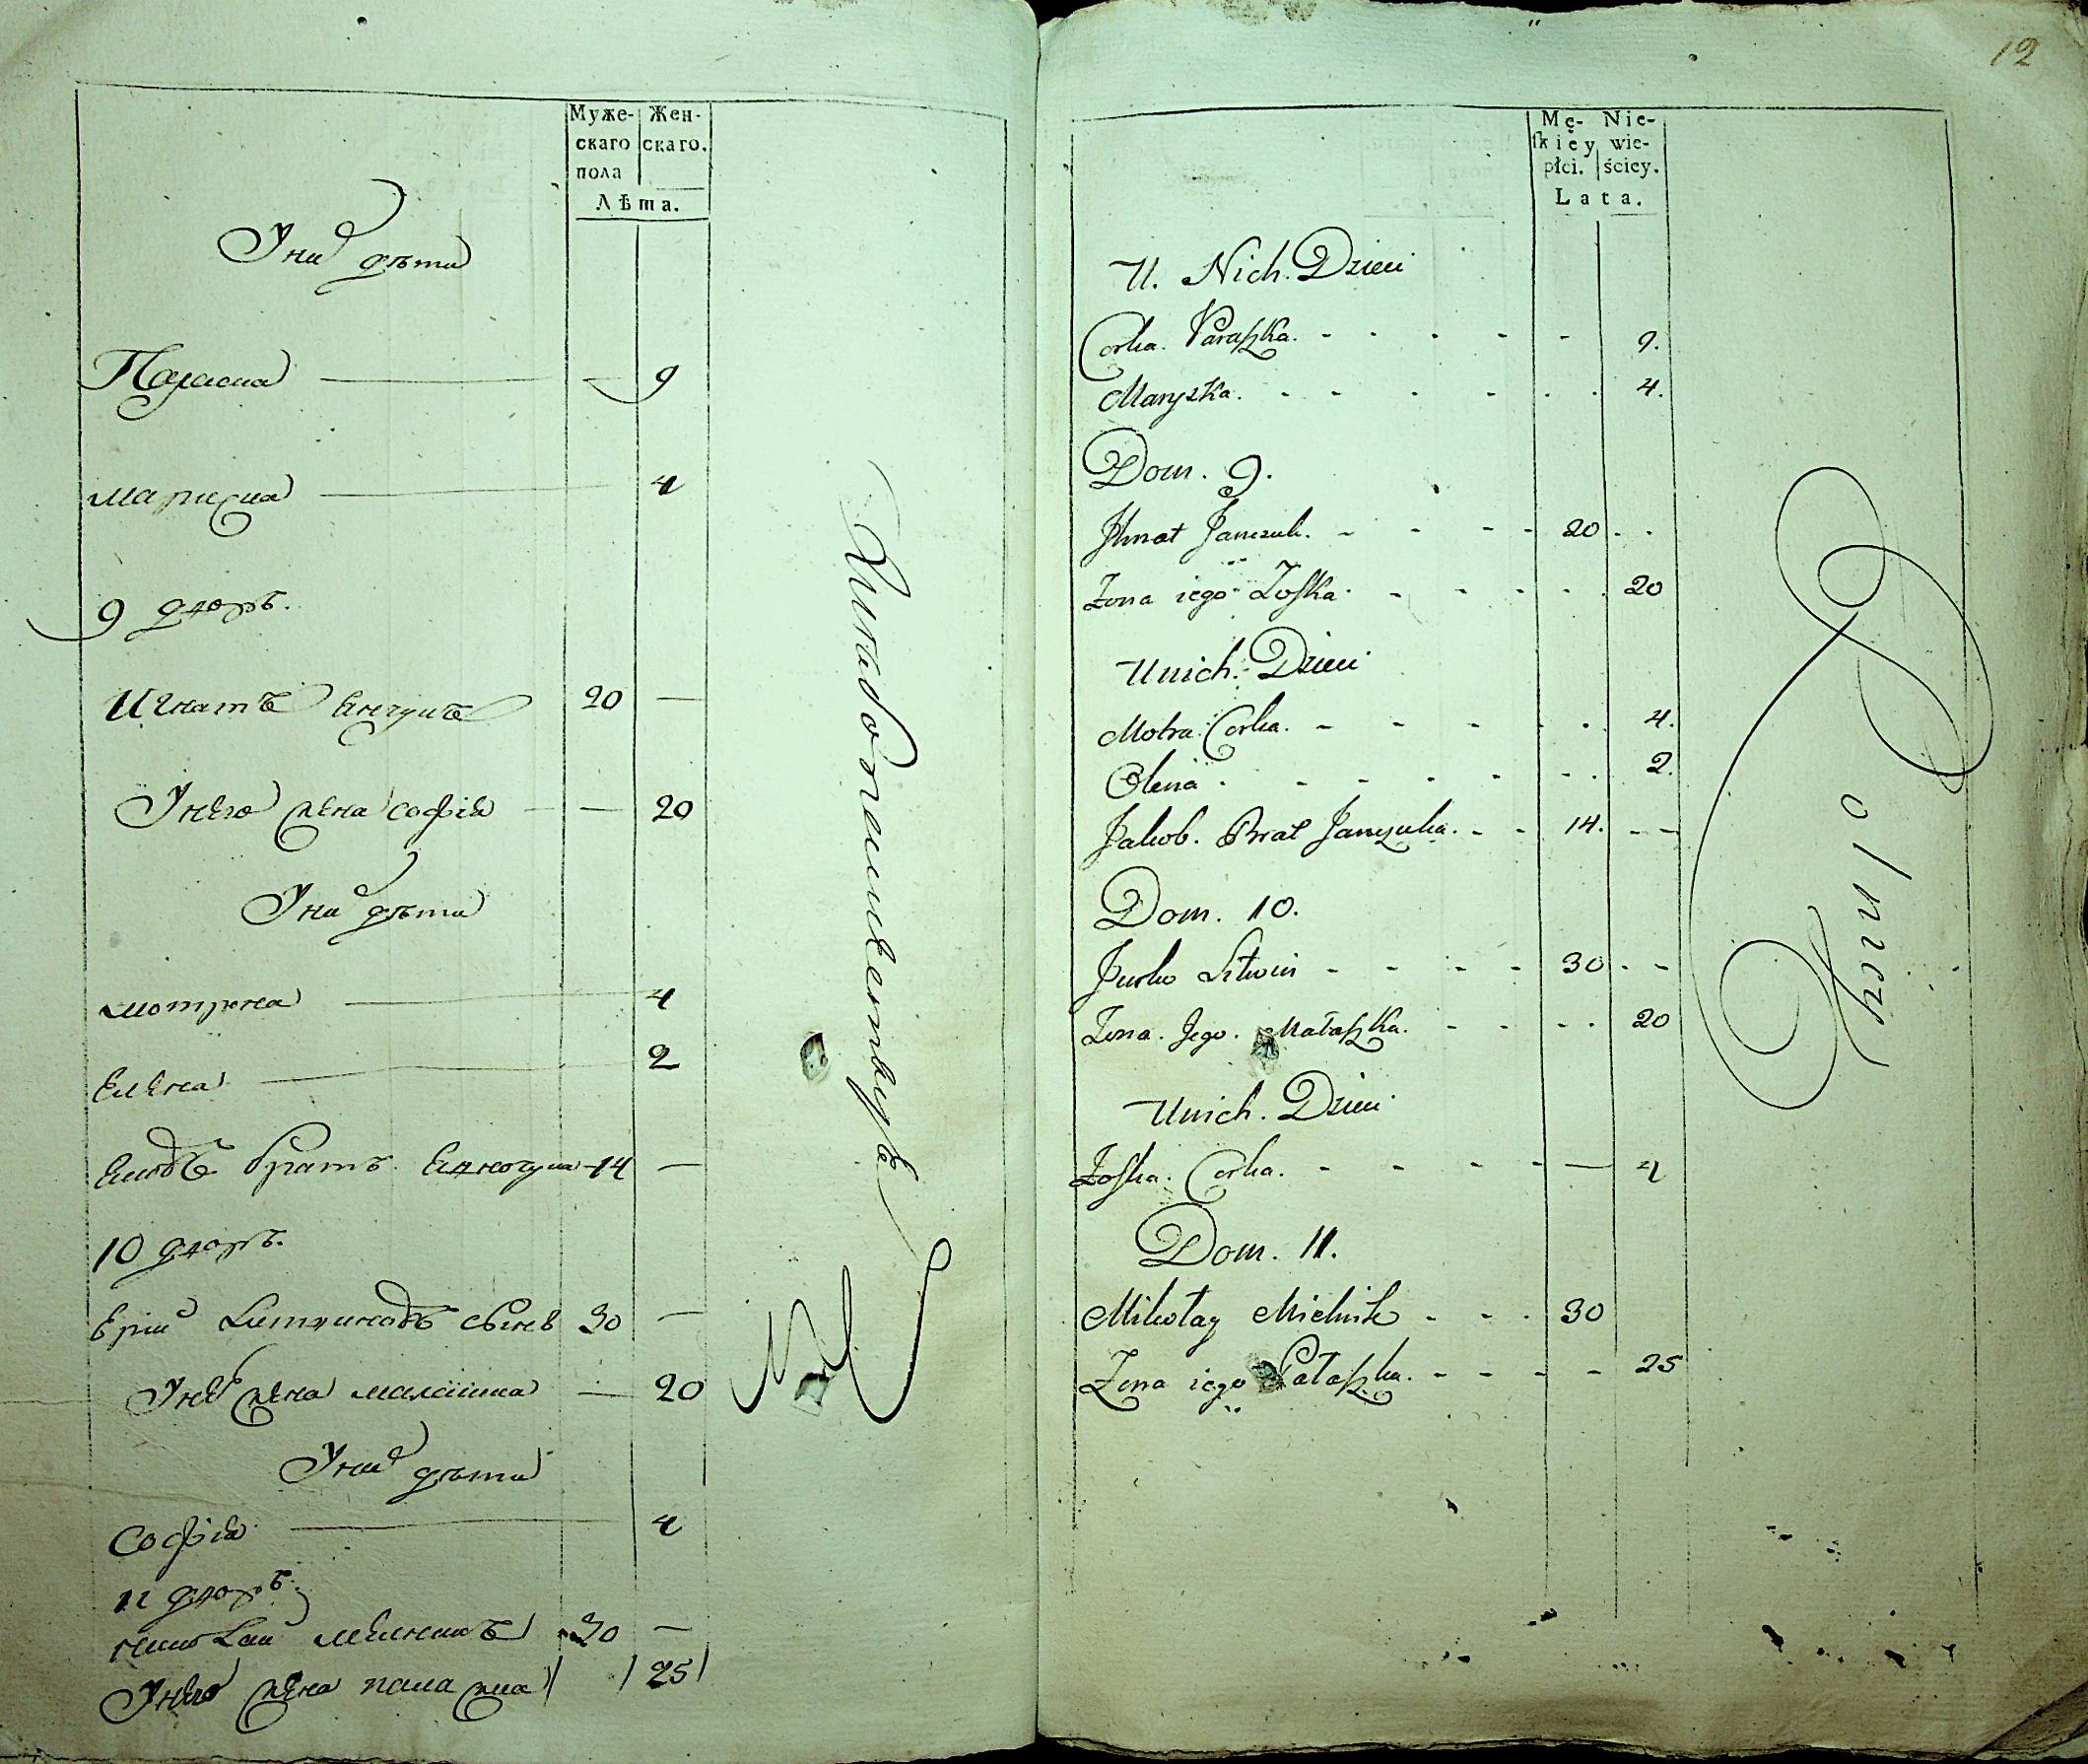 Муже-
скаго
пола
Жен-
скаго.
Лѣта.
У ни дѣти
Параска — 9
Мариска — 4
9 дворъ.
Игнатъ Енчукъ 20 —
У нево жена софія — 20
У ни дѣти
мотрена — 4
елена — 2
братъ 14 —
10 дворъ.
30 —
жена малашка — 20
У ни дѣти
софія — 4
11 дворъ.
николай мелникъ 30 —
У нево жена палажка 25
12
Mę-
ſkiey
płci.
Nie-
wie-
ściey.
Lata.
U. Nich. Dzieci
Corka. Paraszka. - - - - - 9.
Maryszka. - - - - - - 4.
Dom. 9.
Ihnat Janczuk. - - - - 20 - -
Zona iego Zoſka. - - - - - 20
U nich. Dzieci
Motra Corka. - - - - - 4.
Olena - - - - - - - 2.
Jakob. Brat Janczuka. - - 14. - -
Dom. 10.
Jurko Litwin - - - - 30 - -
Zona. Jego. Małaszka. - - - - 20
U nich. Dzieci
Zoſka. Corka. - - - - — 4
Dom. 11.
Mikołay Mielnik - - - 30
Zona iego Pałaszka. - - - - 25